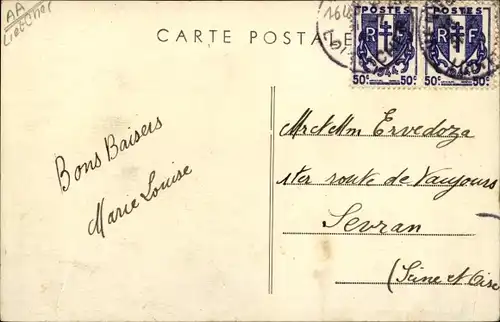 AA
CARTE POSTALE
POSTES
RF
1944
50c 50c
POSTES
RF
1944
50c 50c
Bons Baisers
Marie Louise
Mr et Mm Ervedoza
1ter route de Vaujours
Sevran
(Seine et Oise